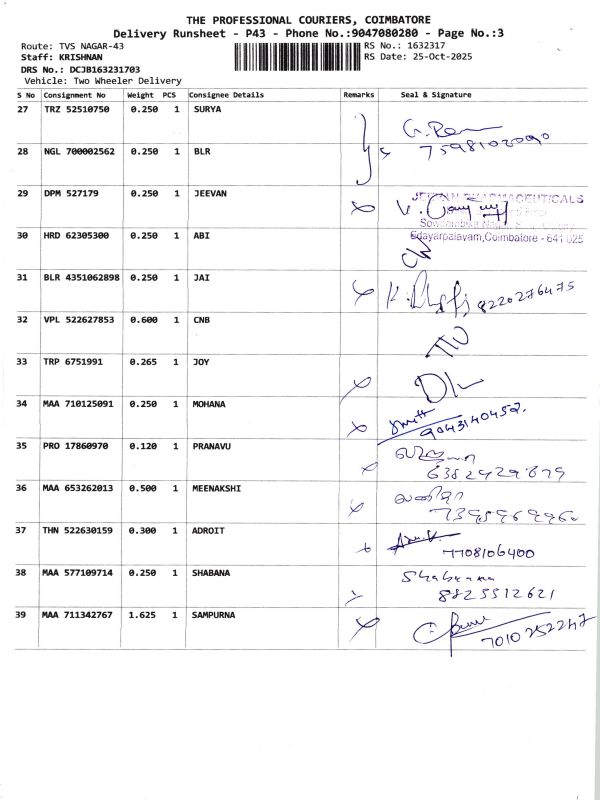 THE PROFESSIONAL COURIERS, COIMBATORE
Delivery Runsheet - P43 - Phone No.:9047080280 - Page No.:3
Route: TVS NAGAR-43
RS No.: 1632317
Staff: KRISHNAN
RS Date: 25-Oct-2025
DRS No.: DCJB163231703
Vehicle: Two Wheeler Delivery
S No Consignment No Weight PCS Consignee Details Remarks Seal & Signature
27 TRZ 52510750 0.250 1 SURYA
7598102090
28 NGL 700002562 0.250 1 BLR
29 DPM 527179 0.250 1 JEEVAN
JEEVAN PHARMACEUTICALS
Edayarpalayam,Coimbatore - 641 025
30 HRD 62305300 0.250 1 ABI
31 BLR 4351062898 0.250 1 JAI
8220276475
32 VPL 522627853 0.600 1 CNB
33 TRP 6751991 0.265 1 JOY
D/L
34 MAA 710125091 0.250 1 MOHANA
9043140452.
35 PRO 17860970 0.120 1 PRANAVU
36 MAA 653262013 0.500 1 MEENAKSHI
37 THN 522630159 0.300 1 ADROIT
7708106400
38 MAA 577109714 0.250 1 SHABANA
Shabana
8825512621
39 MAA 711342767 1.625 1 SAMPURNA
7010252247